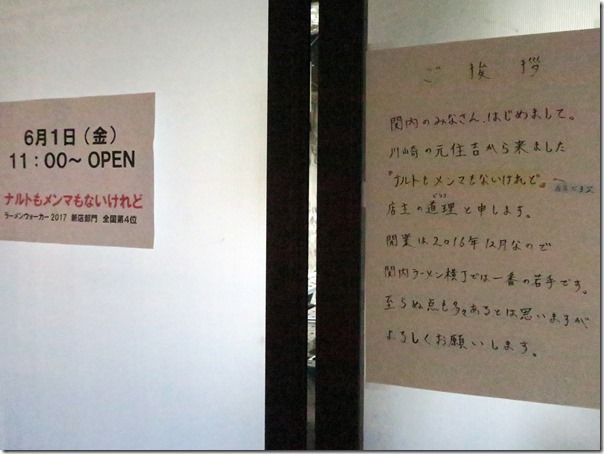 6月1日（金）
11：00～ OPEN
ナルトもメンマもないけれど
ラーメンウォーカー2017 新店部門 全国第4位
ご挨拶
関内のみなさん、はじめまして。
川崎の元住吉から来ました
"ナルトもメンマもないけれど"
店主の道理と申します。
開業は2016年12月なので
関内ラーメン横丁では一番の若手です。
至らぬ点も多々あるとは思いますが
よろしくお願いします。